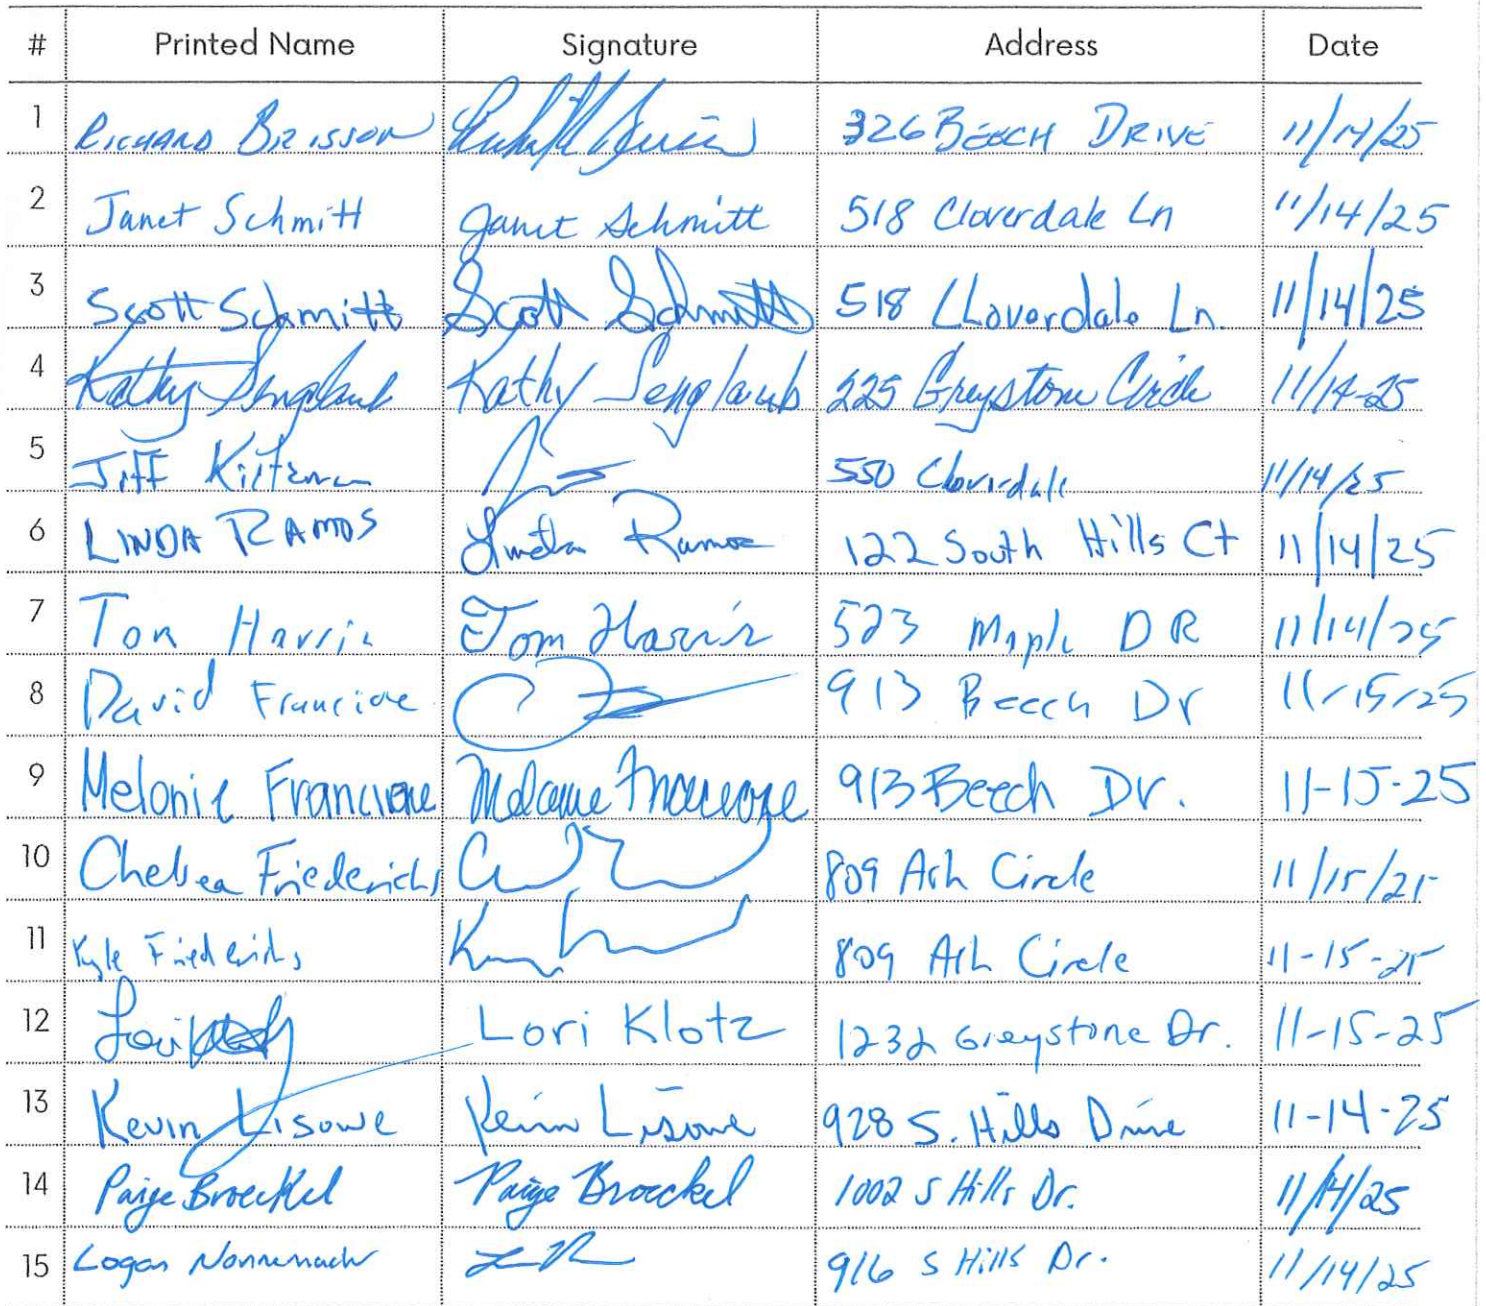 # Printed Name Signature Address Date
1 RICHARD BRISSON 326 BEECH DRIVE 11/14/25
2 Janet Schmitt Janet Schmitt 518 Cloverdale Ln 11/14/25
3 Scott Schmitt Scott Schmitt 518 Cloverdale Ln. 11/14/25
4 Kathy Senglaub Kathy Senglaub 225 Greystone Circle 11/14-25
5 Jeff 550 Cloverdale 11/14/25
6 LINDA RAMOS Linda Ramos 122 South Hills Ct 11/14/25
7 Tom Harris Tom Harris 523 Maple DR 11/14/25
8 David Francione 913 Beech Dr 11/15/25
9 Melonie Francione Melanie Francione 913 Beech Dr. 11-15-25
10 Chelsea Friederichs 809 Ash Circle 11/15/25
11 Kyle Friederichs 809 Ash Circle 11-15-25
12 Lori Lori Klotz 1232 Greystone Dr. 11-15-25
13 Kevin Lisowe Kevin Lisowe 928 S. Hills Drive 11-14-25
14 Paige Broeckel Paige Broeckel 1002 S Hills Dr. 11/14/25
15 Logan 916 S Hills Dr. 11/14/25